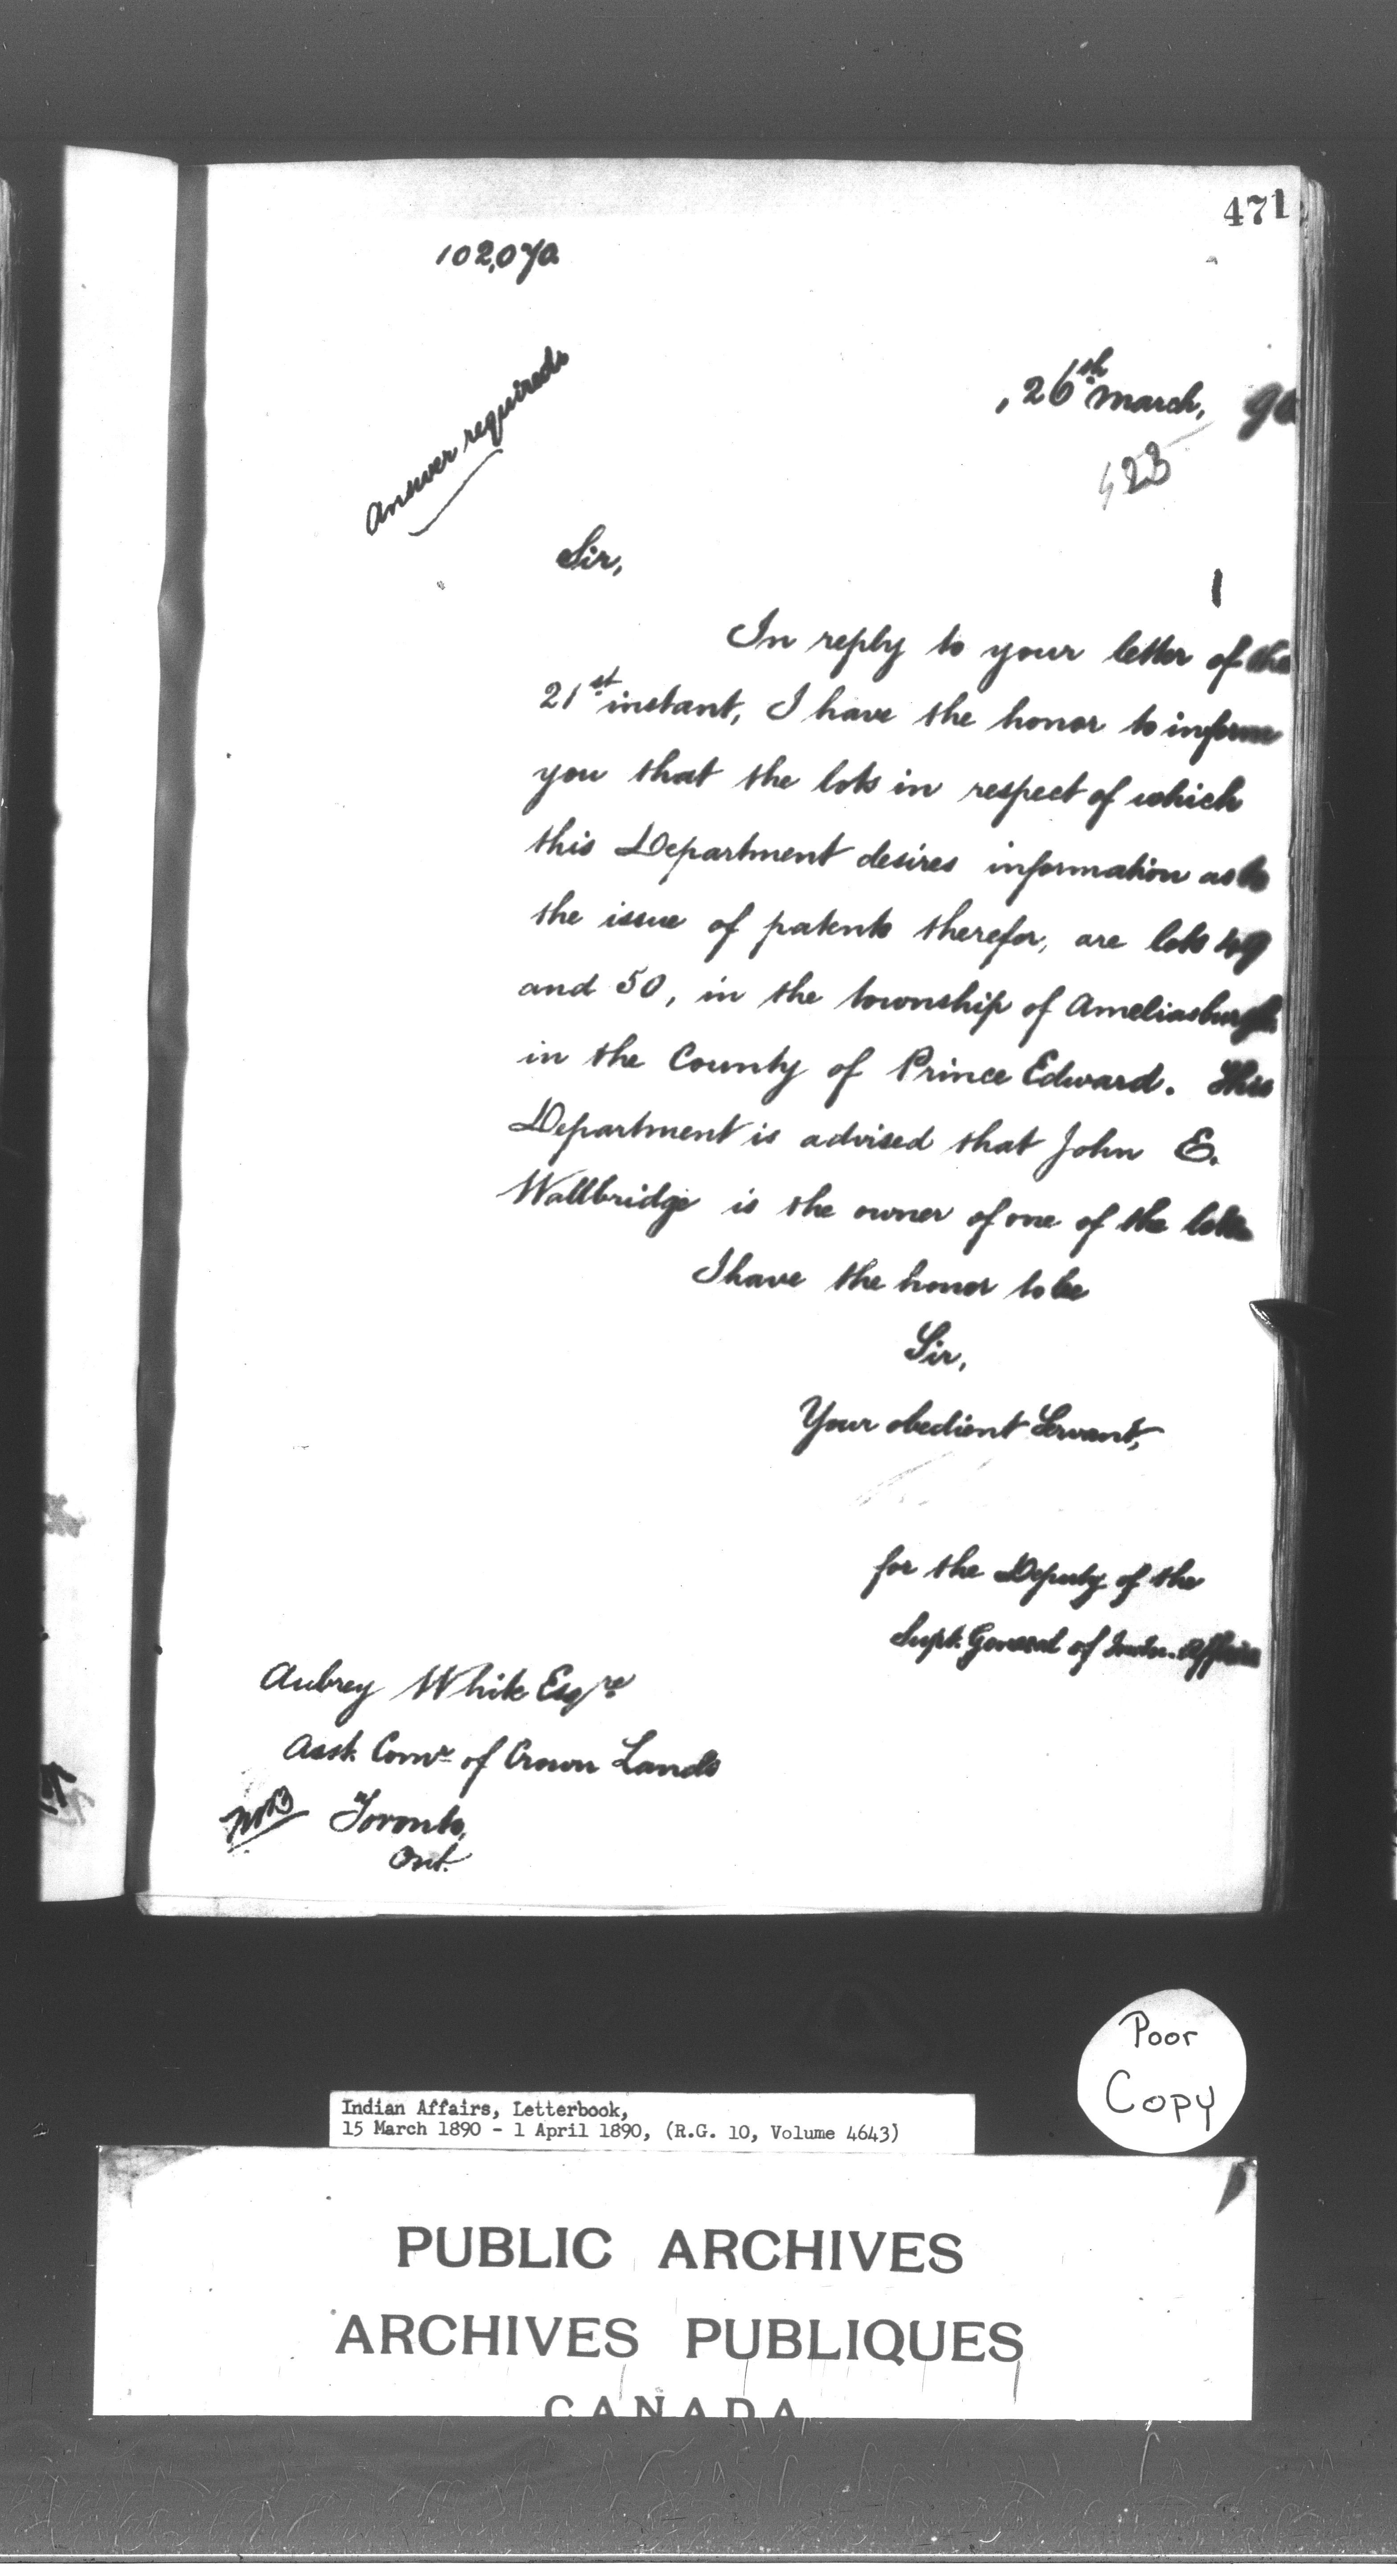 471
102,070
Answer required
, 26th March, 90
423
Sir,
In reply to your letter of the
21st instant, I have the honor to inform
you that the lots in respect of which
this Department desires information as to
the issue of patents therefor, are lots 49
and 50, in the township of Ameliasburgh
in the County of Prince Edward. This
Department is advised that John E.
Wallbridge is the owner of one of the lots
I have the honor to be
Sir,
Your obedient Servant,
for the Deputy of the
Supt. General of Indn. Affairs
Aubrey White Esqre
Asst. Comr of Crown Lands
Toronto,
Ont.
Poor
Copy
Indian Affairs, Letterbook,
15 March 1890 - 1 April 1890, (R.G. 10, Volume 4643)
PUBLIC ARCHIVES
ARCHIVES PUBLIQUES
CANADA